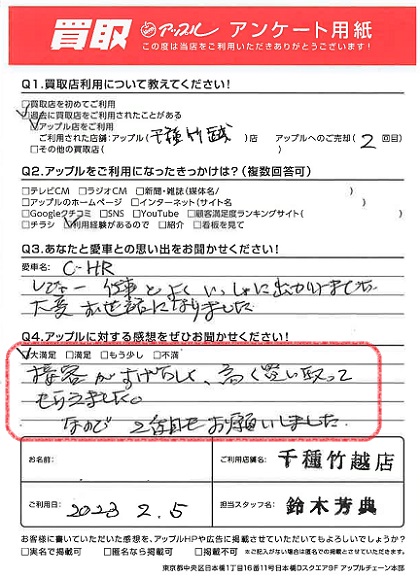 買取 アップル アンケート用紙
この度は当店をご利用いただきありがとうございます!
Q1.買取店利用について教えてください!
□買取を初めてご利用
□過去に買取店をご利用されたことがある
□アップル店をご利用
ご利用された店舗:アップル( 千種竹越 )店 アップルへのご売却( 2 回目)
□その他の買取店( )
Q2.アップルをご利用になったきっかけは?(複数回答可)
□テレビCM □ラジオCM □新聞・雑誌(媒体名/ )
□アップルのホームページ □インターネット(サイト名 )
□Googleクチコミ □SNS □YouTube □顧客満足度ランキングサイト( )
□チラシ □利用経験があるので □紹介 □看板を見て
Q3.あなたと愛車との思い出をお聞かせください!
愛車名: C-HR
仕事とよくいっしょに出かけました
大変お世話になりました
Q4.アップルに対する感想をぜひお聞かせください!
□大満足 □満足 □もう少し □不満
接客がすばらしく、高く買い取って
もらえました。
なので 2台目もお願いしました.
お名前:
ご利用店舗名: 千種竹越店
ご利用日: 2023 2.5
担当スタッフ名: 鈴木芳典
お客様に書いていただいた感想を、アップルHPや広告に掲載させていただいてもよろしいでしょうか?
□実名で掲載可 □匿名なら掲載可 □掲載不可 ※ご記入がない場合は匿名での掲載とさせていただきます。
東京都中央区日本橋1丁目16番11号日本橋Dスクエア9F アップルチェーン本部